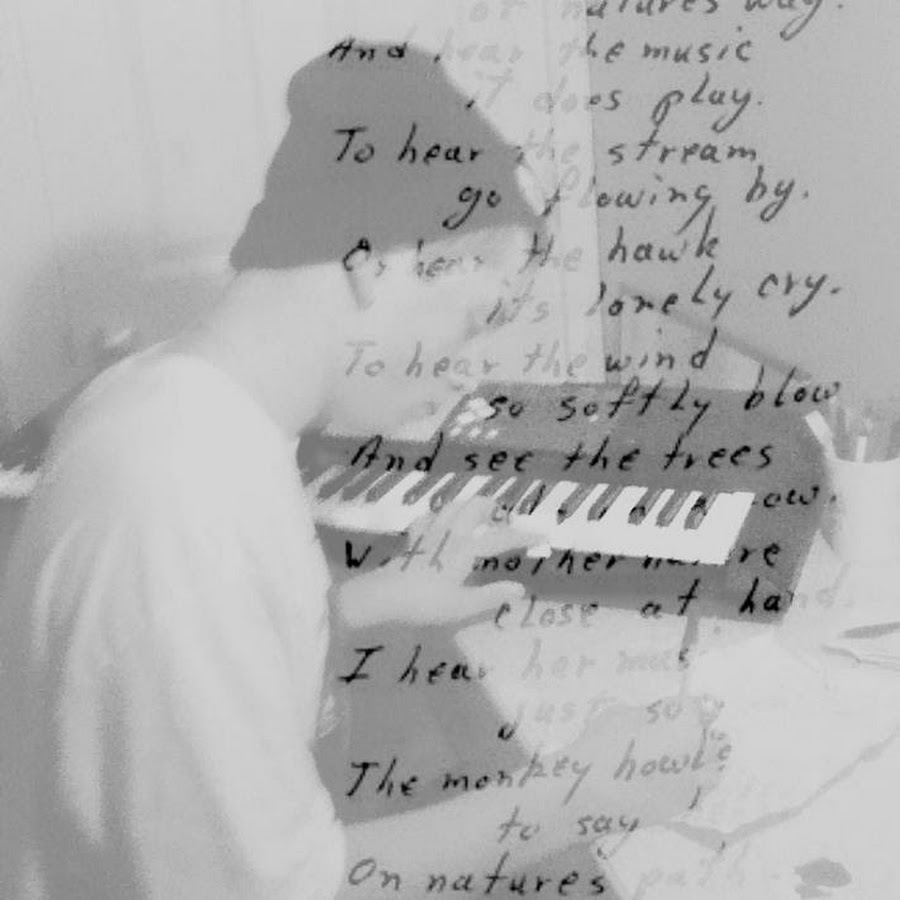 of natures way.
And hear the music
it does play.
To hear the stream
go flowing by.
Or hear the hawk
its lonely cry.
To hear the wind
so softly blow
And see the trees
With mother nature
close at hand.
I hear her music
just so
The monkey howls
to say
On natures path